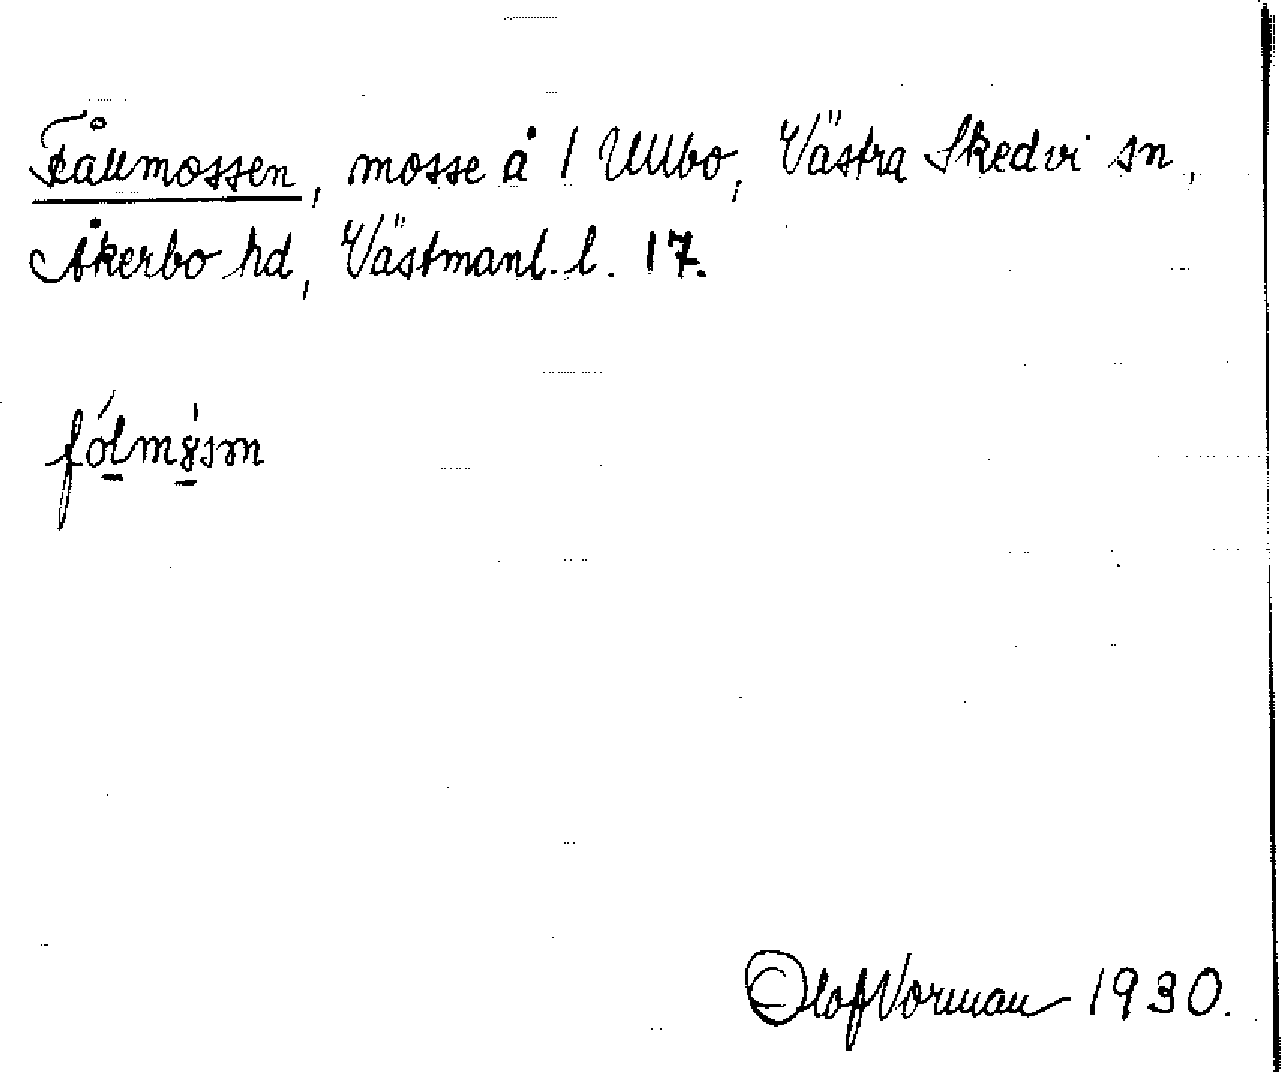 Fållmossen, mosse å 1 Ullbo, Västra Skedvi sn,
Åkerbo hd, Västmanl. l. 17.
fó̱lmo̱sən
Olof Vorman 1930.